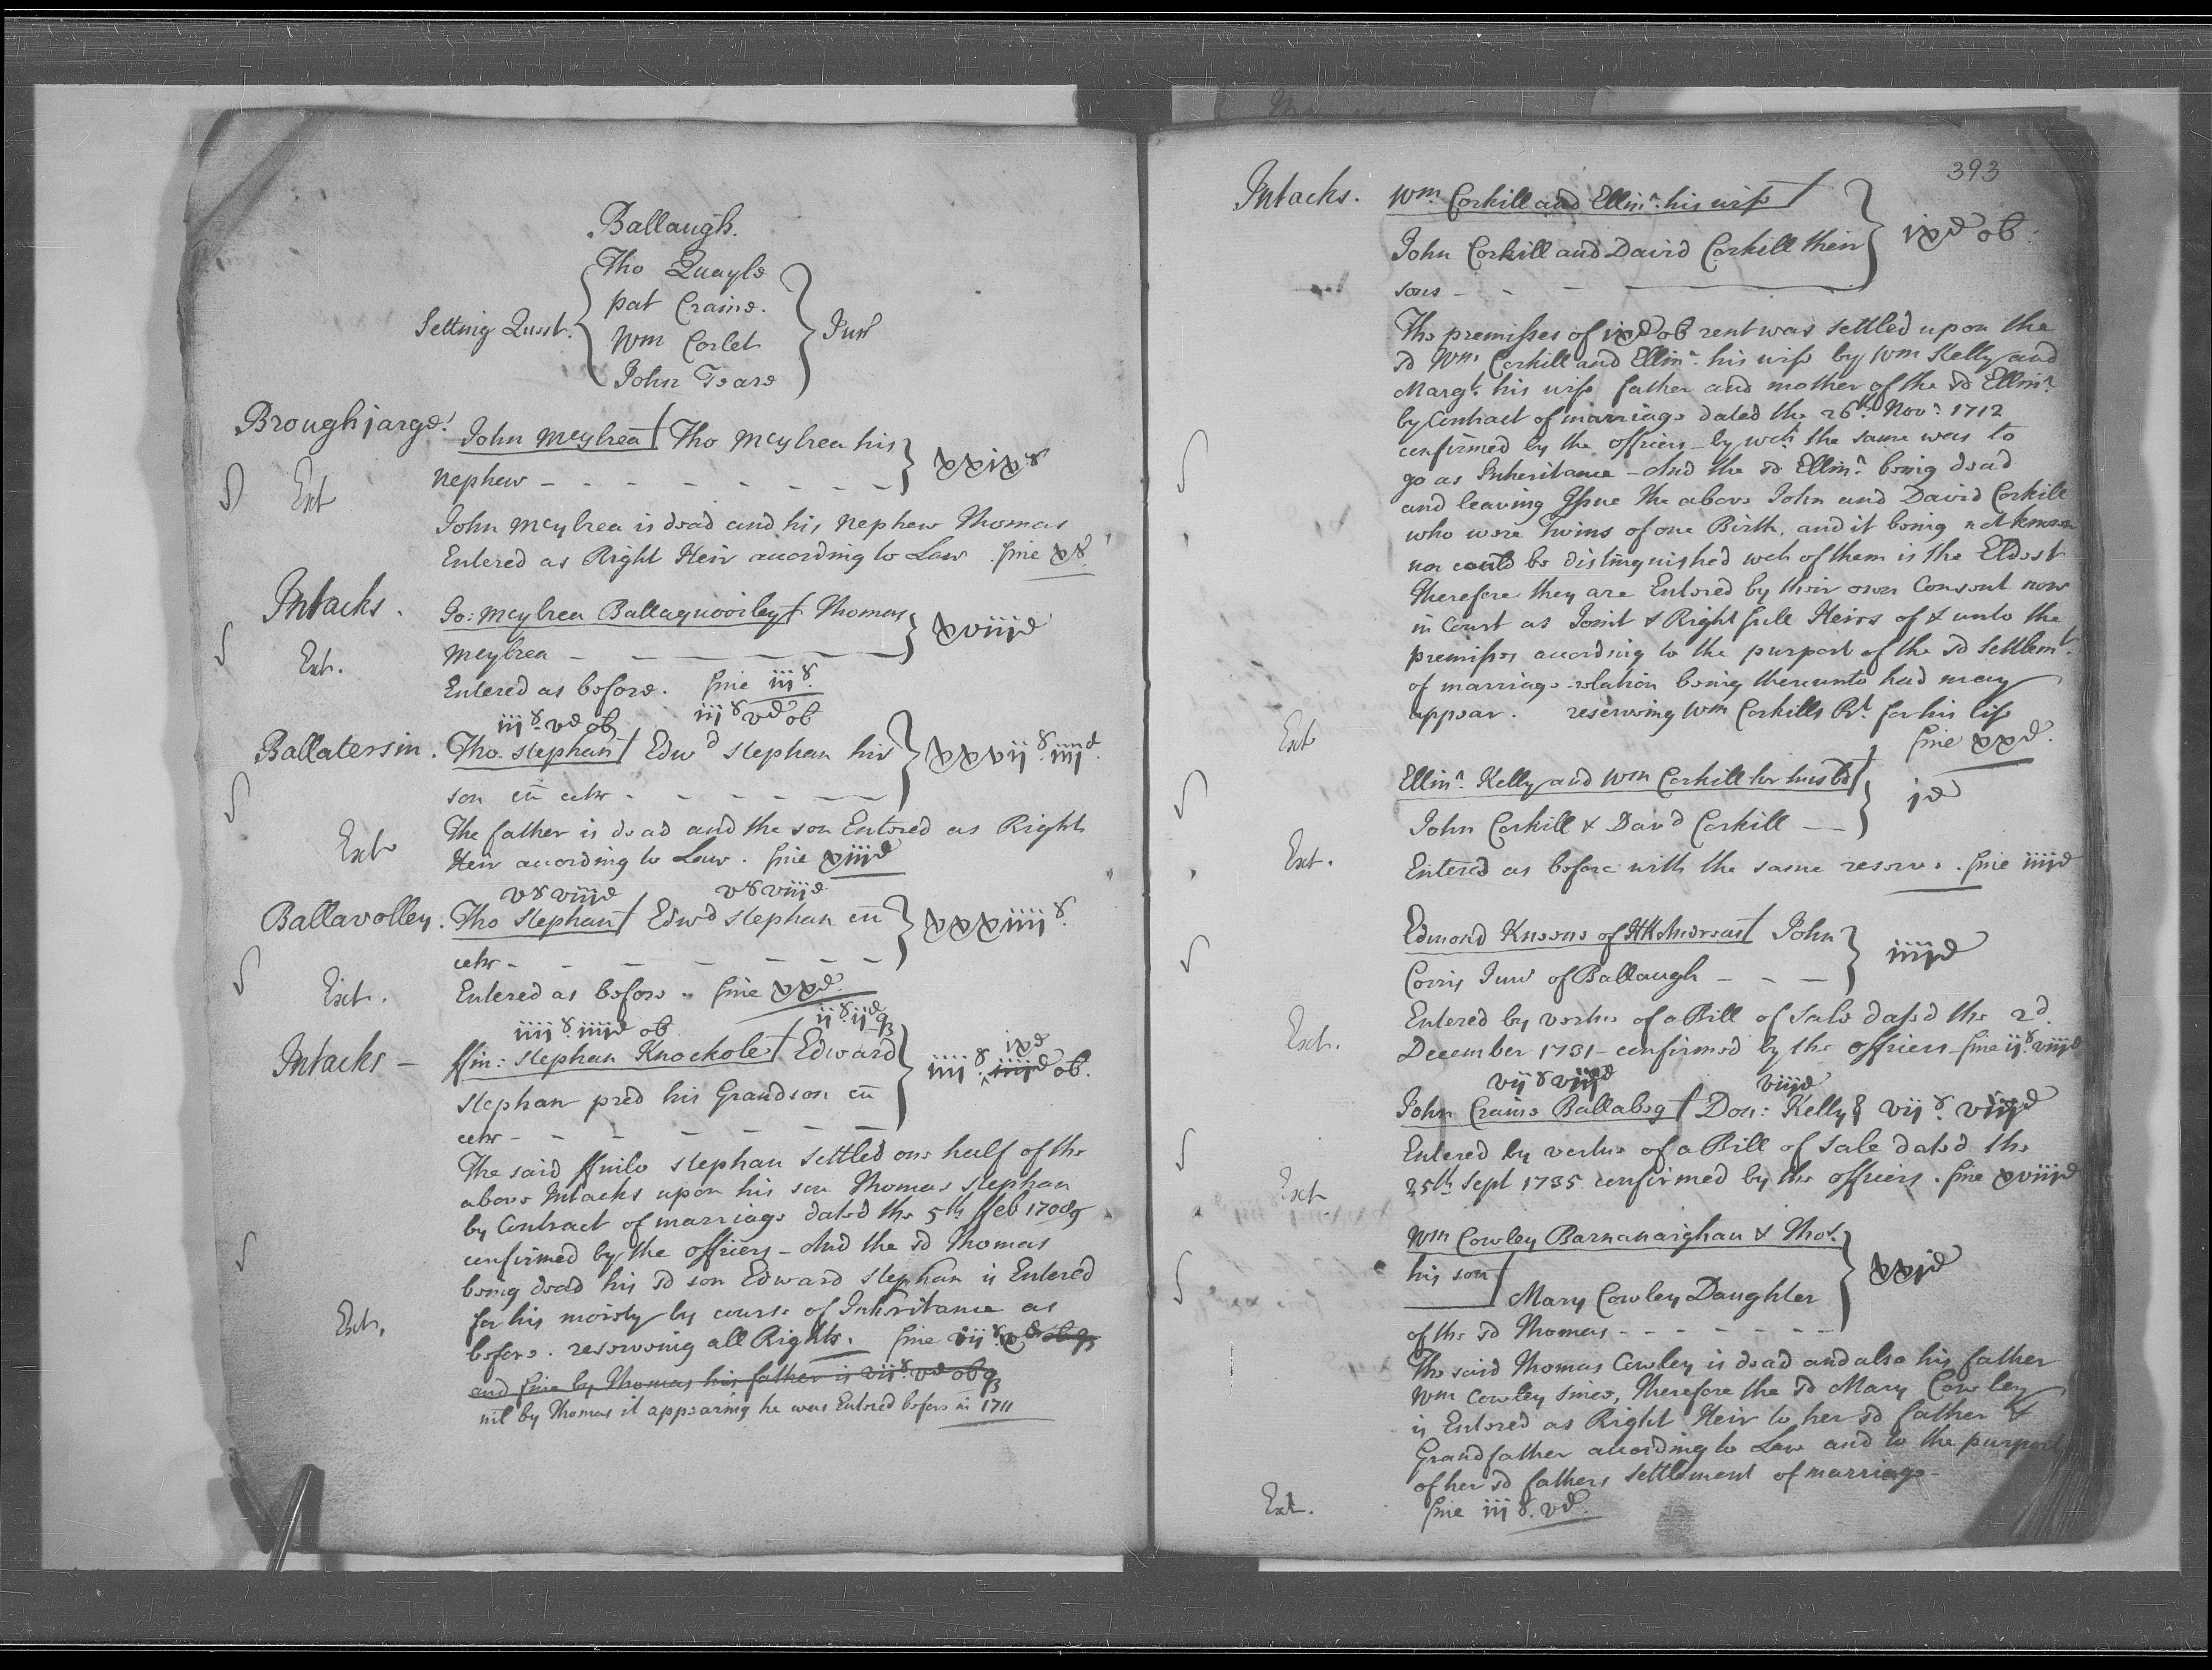 Ballaugh.
Setting Quest.
Tho Quayle
pat Craine.
Wm Corlet
John Teare
Jur
Broughjarge.
John Mcylrea Tho Mcylrea his
nephew - - - - - - - -
xxixs
Ext
John Mcylrea is dead and his Nephew Thomas
Entered as Right Heir according to Law. fine xs.
Intacks.
Jo: Mcylrea Ballaquoirley Thomas
Mcylrea - - -
xviijd
Ext.
Entered as before. fine iijs.
iijs vd ob iijs vd ob
Ballatersin. Tho Stephan Edwd Stephan his
son cū uxr - - - - -
xxvijs iiijd.
The father is dead and the son Entered as Right
Ext
Heir according to Law. fine xiijd
vs viijd vs viijd
Ballavolley. Tho Stephan Edwd Stephan cū
uxr - - - - - - -
xxxiiijs.
Ext. Entered as before. fine xxd.
iiijs. iiijd ob ijs. ijd q
Intacks - ffin: Stephan Knockole Edward
Stephan pred his Grandson cū
uxr - - - - - - -
iiijs. iiijd ixd ob.
The said ffinlo Stephan Settled one half of the
above Intacks upon his son Thomas Stephan
by Contract of marriage dated the 5th ffeb 1708/9
confirmed by the officers - And the sd Thomas
being dead his sd son Edward Stephan is Entered
for his moiety by course of Inheritance as
Ext.
before. reserveing all Rights. fine vijs. vd ob q
and fine by Thomas his father is vijs. vd ob q
nil by Thomas it appearing he was Entered before in 1711
393
Intacks. Wm Corkill and Ellinr. his wife
John Corkill and David Corkill their
sons - - - -
ixd ob
The premisses of ixd ob rent was settled upon the
sd Wm Corkill and Ellinr. his wife by Wm Kelly and
Margt. his wife father and mother of the sd Ellinr.
by Contract of marriage dated the 26th. Novr. 1712
confirmed by the officers - by wch the same was to
go as Inheritance - And the sd Ellinr. being dead
and leaving Issue the above John and David Corkill
who were Twins of one Birth, and it being not known
nor could be distinguished wch of them is the Eldest
Therefore they are Entered by their own Consent now
in Court as Joint & Right full Heirs of & unto the
premisses according to the purport of the sd Settlemt.
of marriage relation being thereunto had may
appear. reserveing Wm Corkills Rt. for his life
Ext
fine xxd.
Ellinr. Kelly and Wm Corkill her husbd
John Corkill & David Corkill -
jd
Ext. Entered as before with the same reserve. fine iiijd
Edmond Kneene of KK Andreas John
Corris Junr of Ballaugh - - -
iiijd
Entered by vertue of a Bill of Sale dated the 2d.
Ext.
December 1731 - confirmed by the officers - fine ijs. viijd
vijs viijd viijd
John Craine Ballabeg Don: Kelly vijs. viijd
Entered by vertue of a Bill of Sale dated the
25th Sept 1735 confirmed by the officers. fine xviijd
Ext
Wm Cowley Barnanarghan & Thos.
his son Mary Cowley Daughter
of the sd Thomas - - - - - - -
xxjd
The said Thomas Cowley is dead and also his father
Wm Cowley since, Therefore the sd Mary Cowley
is Entered as Right Heir to her sd father &
Grandfather according to Law and to the purport
of her sd fathers Settlement of marriage -
Ext. fine iijs. vd.